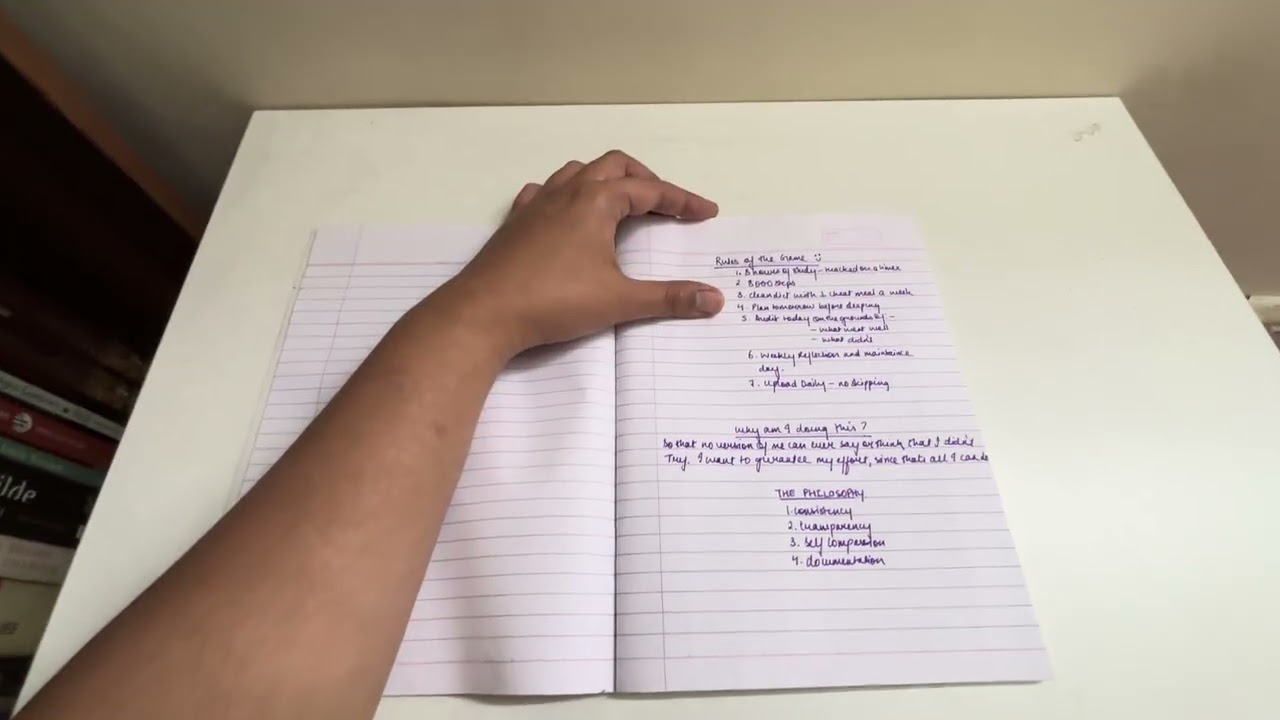 Rules of the Game :)
1. 8 hours of study - tracked on a timer
2. 8000 steps
3. clean diet with 1 cheat meal a week
4. Plan tomorrow before sleeping
5. Audit today on the grounds of -
- what went well
- what didn't
6. Weekly Reflection and maintaince
day.
7. Upload Daily - no skipping
Why am I doing this?
So that no version of me can ever say or think that I didn't
Try. I want to gurantee my effort, since thats all I can do
THE PHILOSOPHY
1. consistency
2. transparency
3. Self compassion
4. documentation
ilde